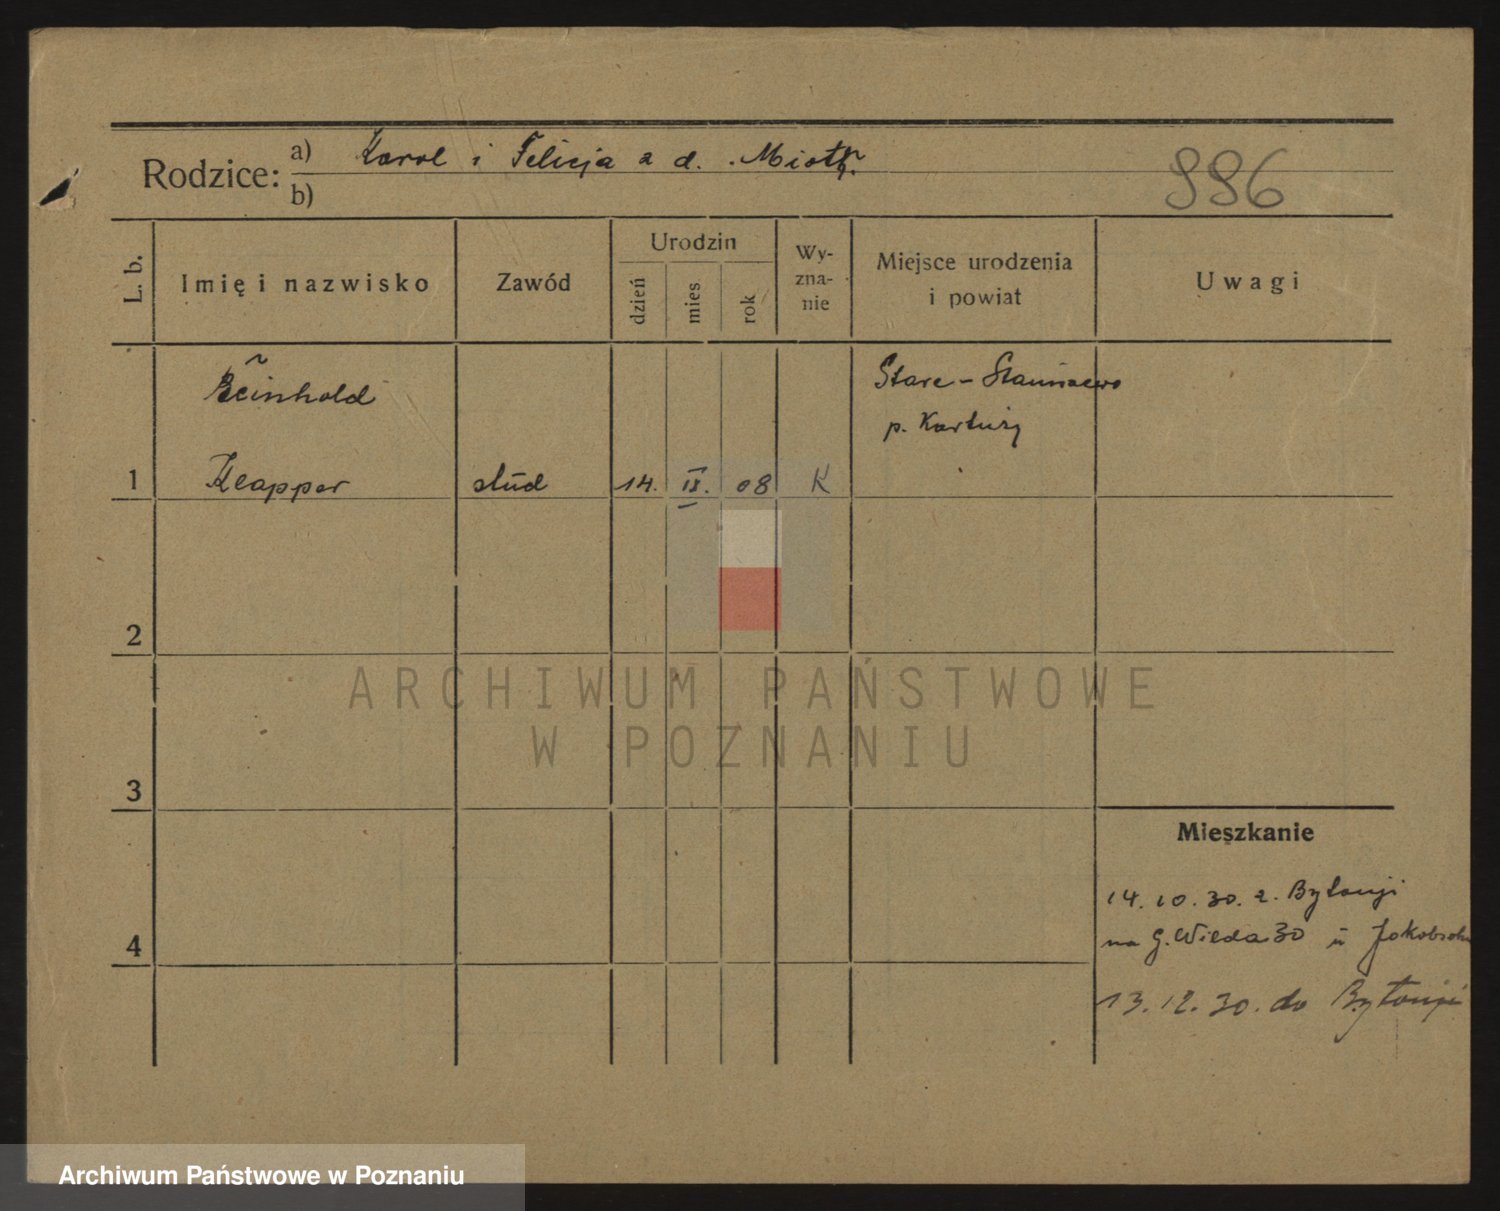 Rodzice: a) Karol i Felicja z d.
b)
996
L. b.
Imię i nazwisko
Zawód
Urodzin
dzień
mies
rok
Wy-
zna-
nie
Miejsce urodzenia
i powiat
Uwagi
Reinhold
Stare - Staniszewo
p. Kartuzy
1 Klapper stud 14. IX. 08 K
2
3
4
Mieszkanie
14.10.30. z. Bytonji
na G. Wilda 30 u Jakobsohn
13.12.30. do Bytonji
ARCHIWUM PAŃSTWOWE
W POZNANIU
Archiwum Państwowe w Poznaniu